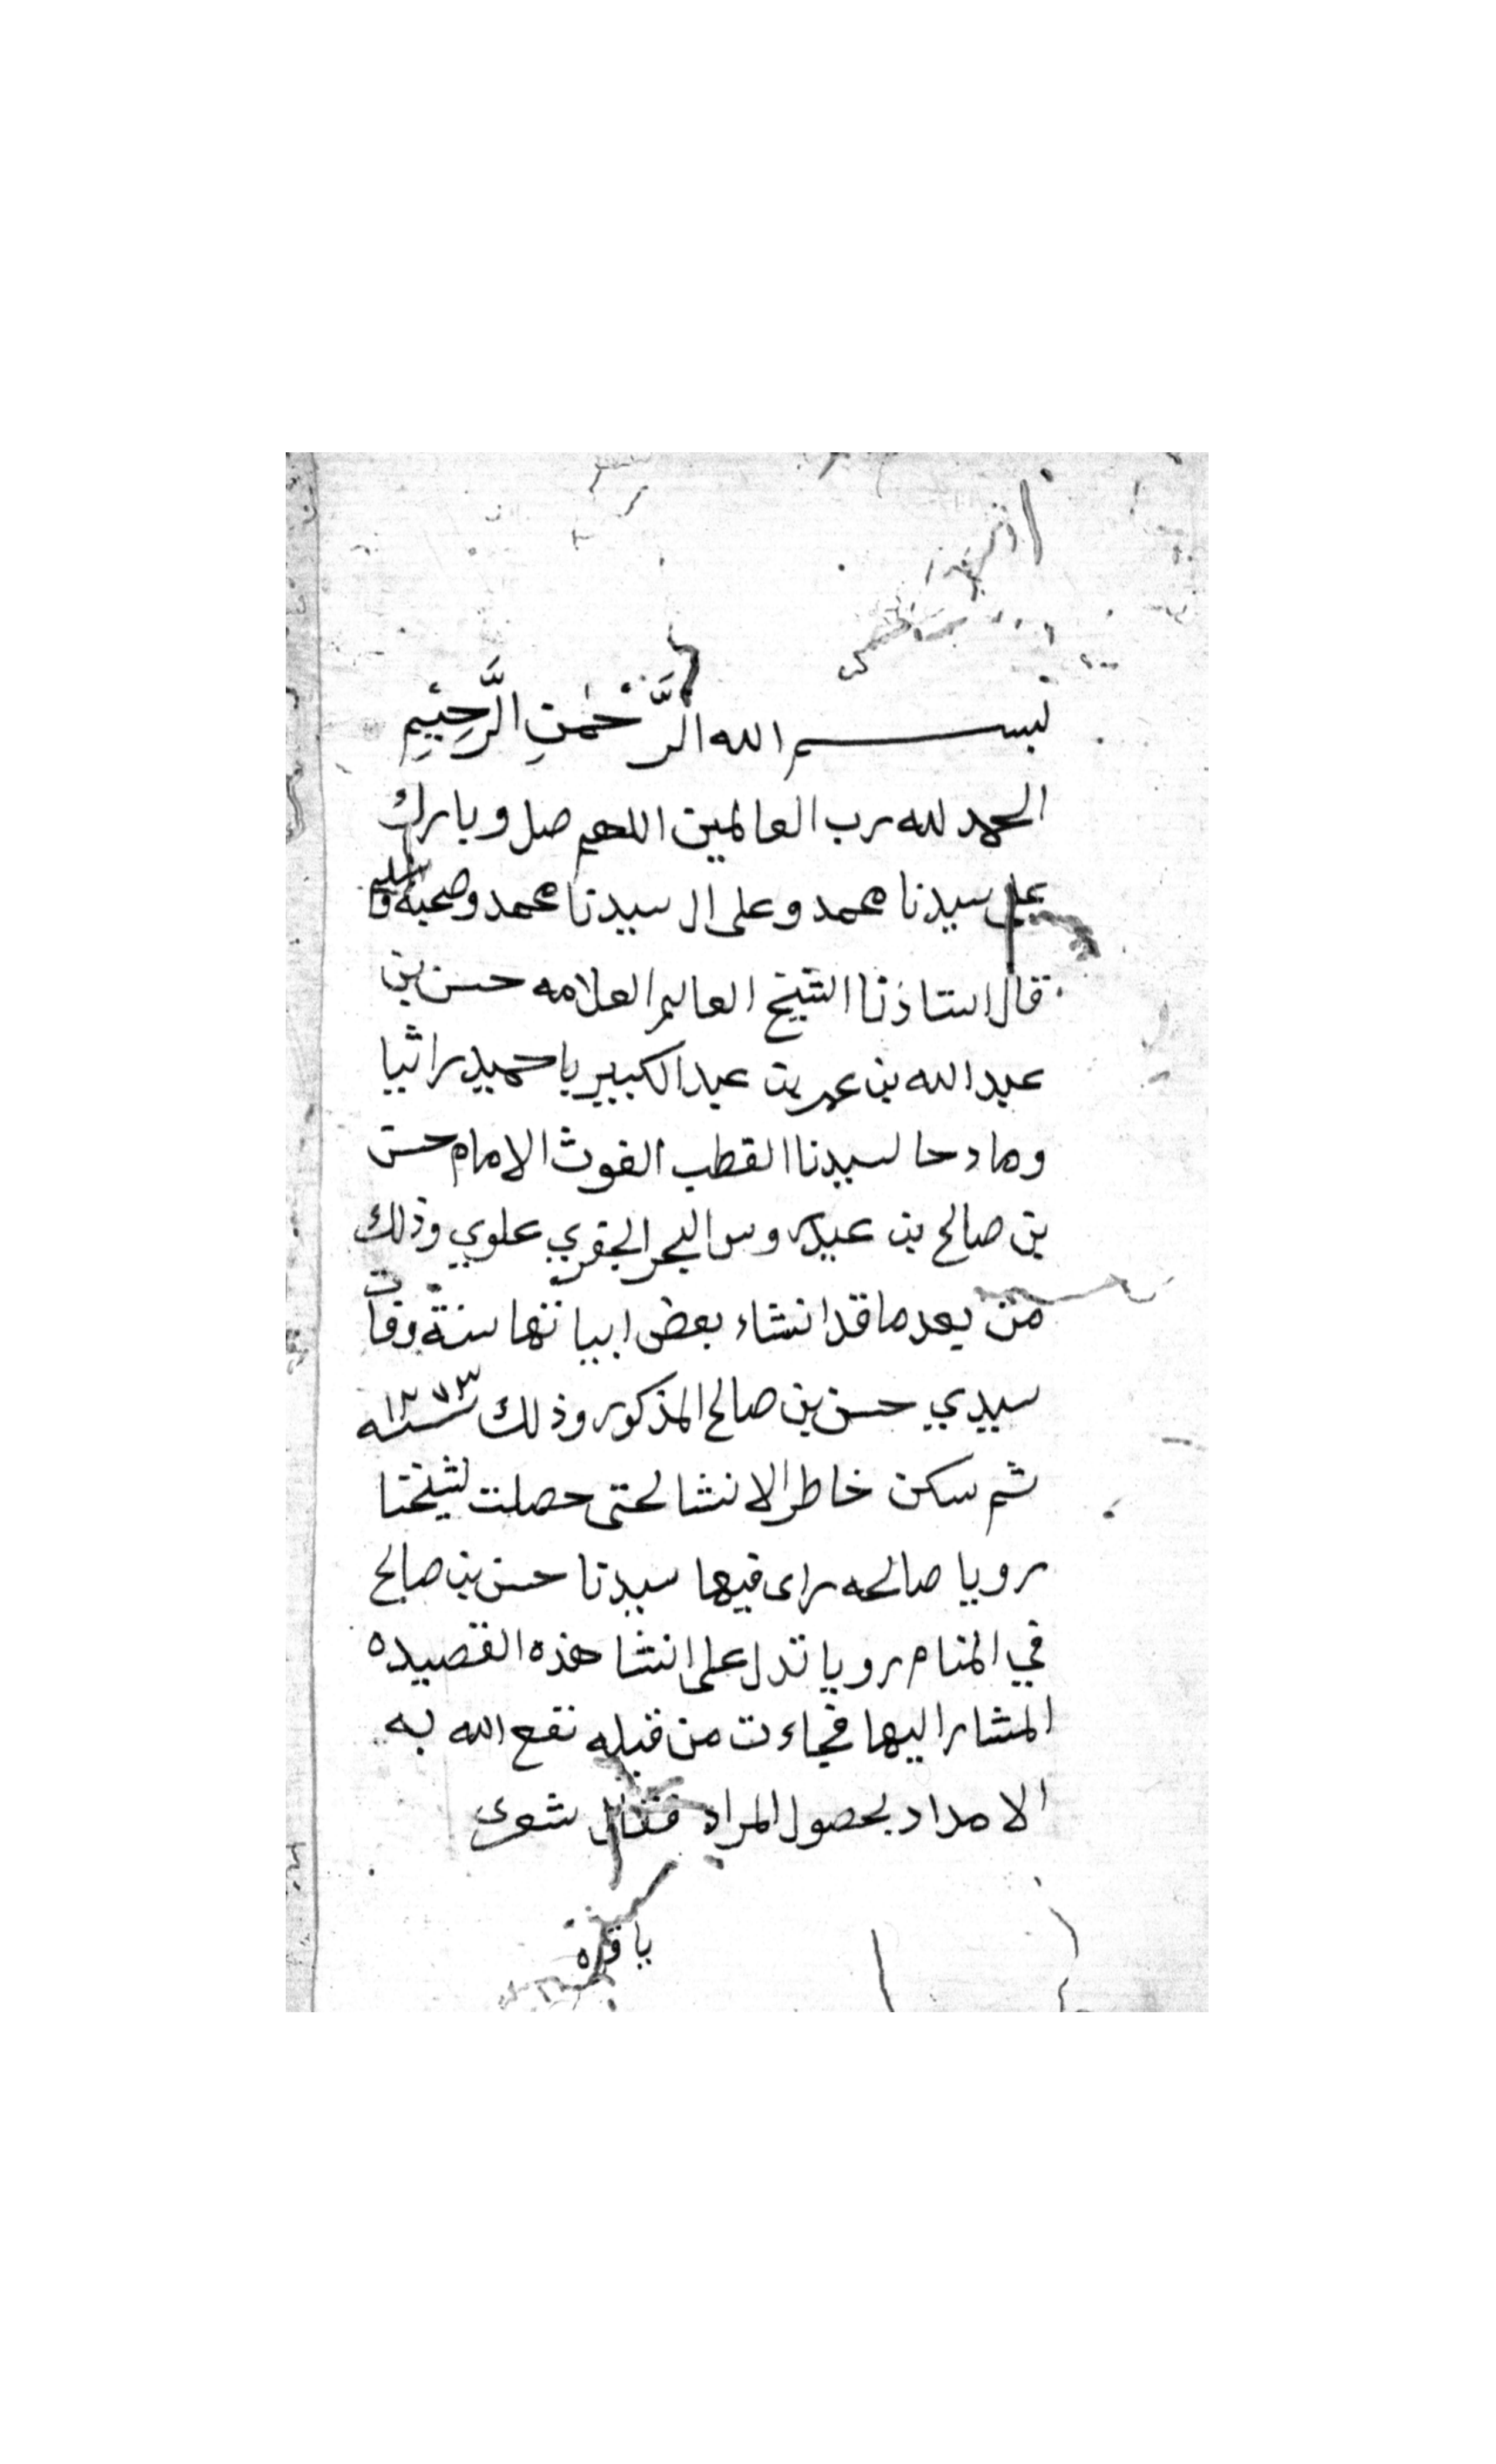 بسم الله الرَّحْمٰنِ الرَّحِيْمِ
الحمد لله رب العالمين اللهم صل وبارك
على سيدنا محمد وعلى ال سيدنا محمد وصحبه وسلم
قال استاذنا الشيخ العالم العلامه حسن بن
عبد الله بن عمر بن عبد الكبير باحميد راثيا
ومادحا لسيدنا القطب الغوث الامام حسن
بن صالح بن عيدروس البحر الجفري علوي وذلك
من بعد ما قد انشاء بعض ابياتها سنة وفات
سيدي حسن بن صالح المذكور وذلك سنه ١٢٧٣
ثم سكن خاطر الانشا لحتى حصلت لشيخنا
رويا صالحه راى فيها سيدنا حسن بن صالح
في المنام رويا تدل على انشا هذه القصيده
المشار اليها فجاءت من قبله نفع الله به
الامداد بحصول المراد فقال شعرا
يا قره